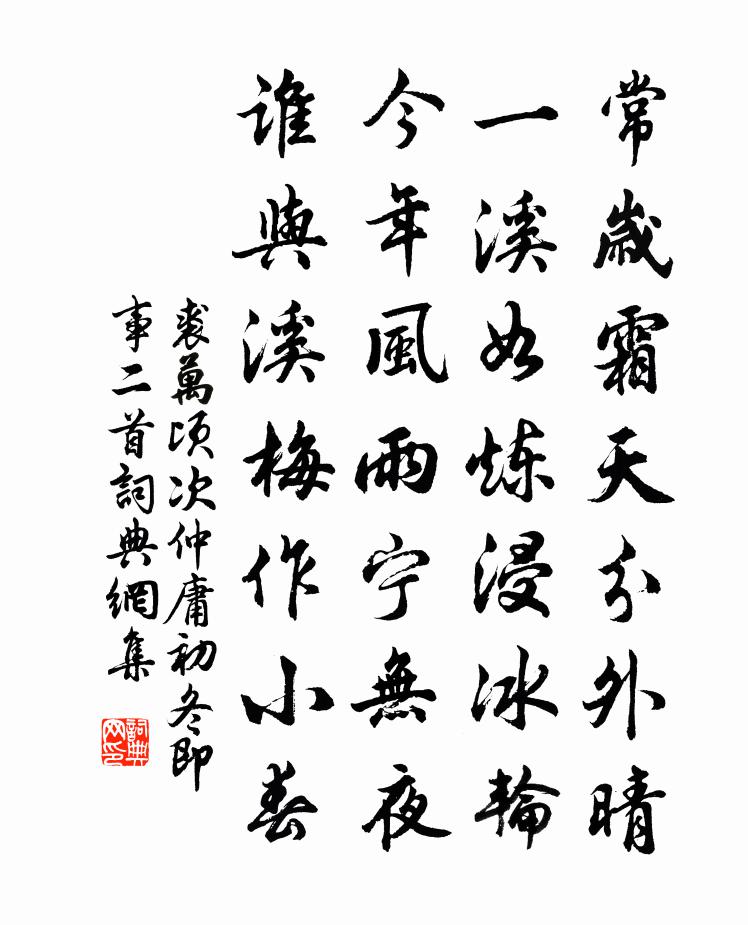 常歲霜天分外晴
一溪如炼浸冰輪
今年風雨宁無夜
誰與溪梅作小春
裘萬頃次仲庸初冬即
事二首詞典網集
詞典
网印